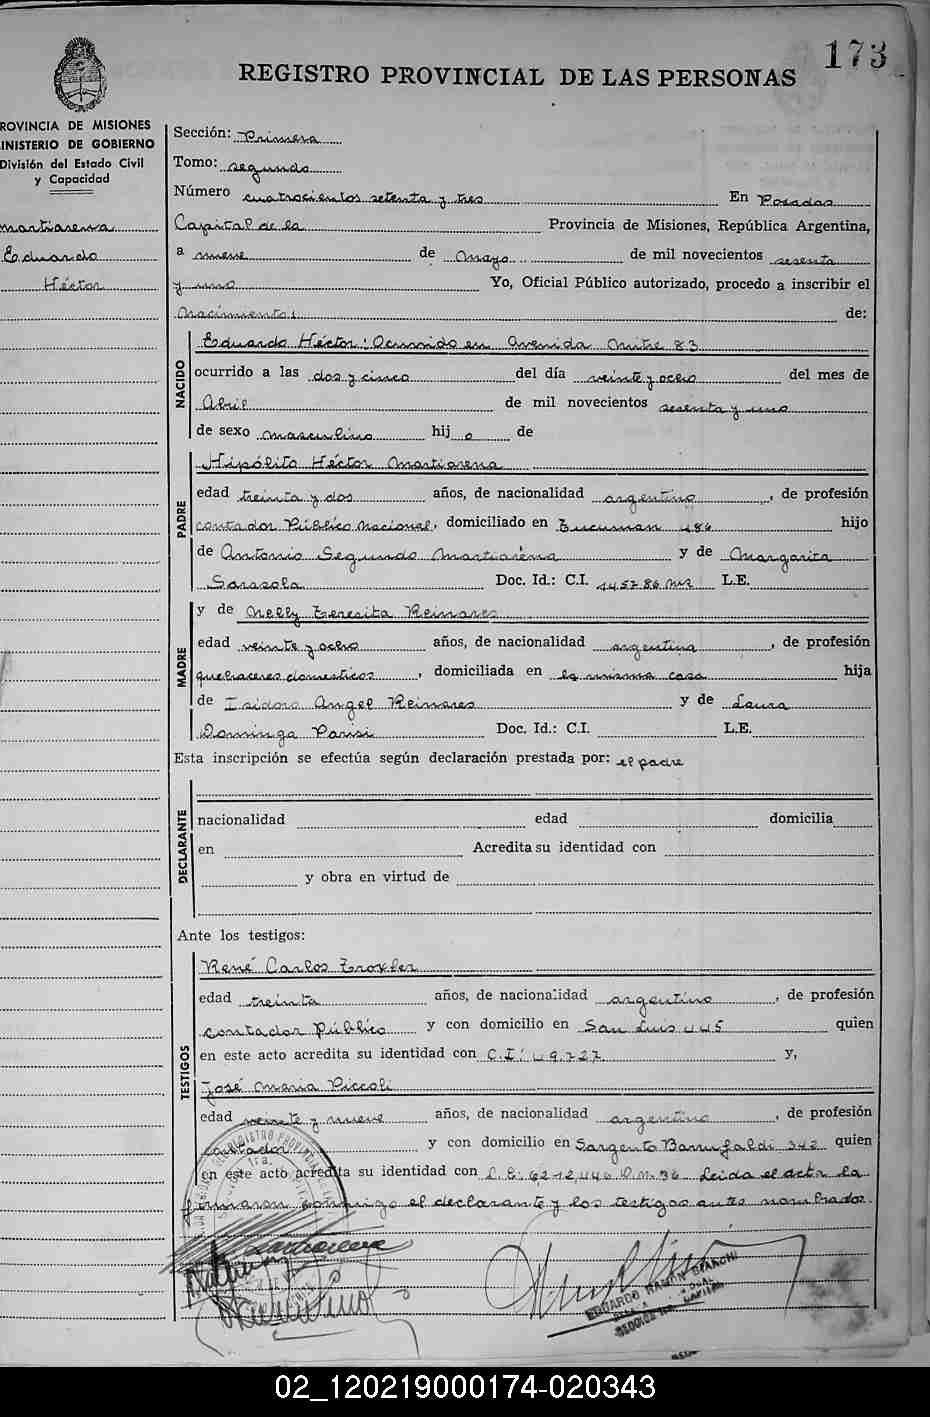 173
REGISTRO PROVINCIAL DE LAS PERSONAS
ROVINCIA DE MISIONES
INISTERIO DE GOBIERNO
División del Estado Civil
y Capacidad
Martiarena
Eduardo
Héctor
Sección: Primera
Tomo: segundo
Número cuatrocientos setenta y tres En Posadas
Capital de la Provincia de Misiones, República Argentina,
a nueve de Mayo de mil novecientos sesenta
y uno Yo, Oficial Público autorizado, procedo a inscribir el
Nacimiento: de:
NACIDO
Eduardo Héctor: Ocurrido en Avenida Mitre 83
ocurrido a las dos y cinco del día veinte y ocho del mes de
Abril de mil novecientos sesenta y uno
de sexo masculino hij o de
PADRE
Hipólito Héctor Martiarena
edad treinta y dos años, de nacionalidad argentino, de profesión
contador Público Nacional, domiciliado en Tucuman 486 hijo
de Antonio Segundo Martiarena y de Margarita
Sarasola Doc. Id.: C.I. 145786 L.E.
MADRE
y de Nelly Teresita Reinares
edad veinte y ocho años, de nacionalidad argentina, de profesión
quehaceres domesticos, domiciliada en la misma casa hija
de Isidoro Angel Reinares y de Laura
Dominga Parisi Doc. Id.: C.I. L.E.
Esta inscripción se efectúa según declaración prestada por: el padre
DECLARANTE
nacionalidad edad domicilia
en Acredita su identidad con
y obra en virtud de
Ante los testigos:
TESTIGOS
René Carlos Troxler
edad treinta años, de nacionalidad argentino, de profesión
contador Público y con domicilio en San Luis 445 quien
en este acto acredita su identidad con C.I: 49.727 y,
José Maria Piccoli
edad veinte y nueve años, de nacionalidad argentino, de profesión
contador y con domicilio en Sargento Barrufaldi 342 quien
en este acto acredita su identidad con L.E. 6212,446 D.M.36 Leida el acta la
firmaron conmigo el declarante y los testigos antes nombrados.
EDUARDO RAMON BIANCHI
02_120219000174-020343